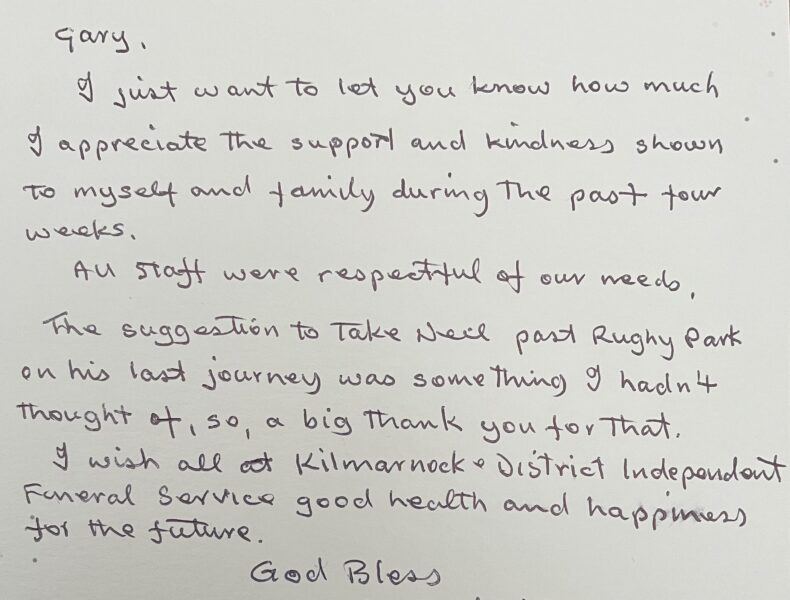 Gary.
I just want to let you know how much
I appreciate the support and kindness shown
to myself and family during the past four
weeks.
All staff were respectful of our needs.
The suggestion to take Neil past Rugby Park
on his last journey was something I hadn't
thought of, so, a big thank you for that.
I wish all at Kilmarnock & District Independent
Funeral Service good health and happiness
for the future.
God Bless